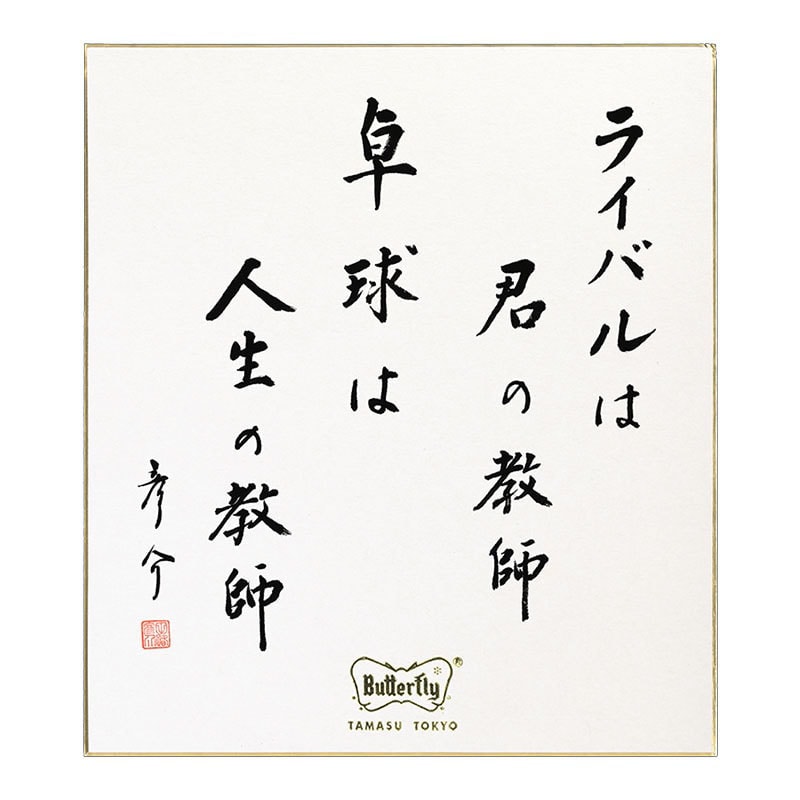 ライバルは
君の教師
卓球は
人生の教師
彦介
Butterfly ®
TAMASU TOKYO